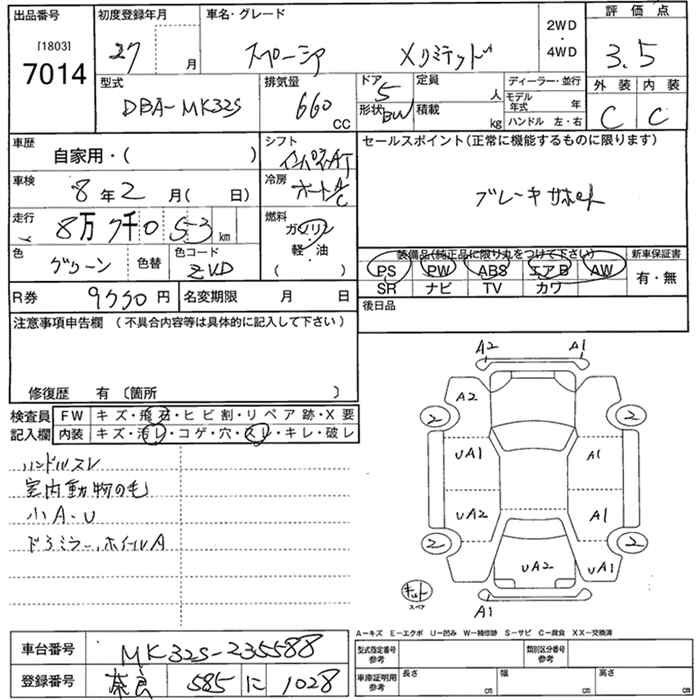 出品番号
[1803]
7014
初度登録年月
27 月
車名・グレード
スペーシア Xリミテッド
2WD
・
4WD
評価点
3.5
外装 内装
C C
型式
DBA-MK32S
排気量
660 CC
ドア
5
形状 BW
定員
人
積載
kg
ディーラー・並行
モデル年式 年
ハンドル 左・右
車歴
自家用・( )
シフト
インパネAT
車検
8年2月( 日)
冷房
オートA/C
走行
8万7千053km
燃料
ガソリン
軽・油
( )
色
グリーン
色替
色コード
ZVD
R券
9550円
名変期限 月 日
セールスポイント(正常に機能するものに限ります)
ブレーキサポート
装備品(純正品に限り丸をつけて下さい)
PS PW ABS エアB AW
SR ナビ TV カワ
新車保証書
有・無
後日品
注意事項申告欄 (不具合内容等は具体的に記入して下さい)
修復歴 有 〔箇所 〕
検査員記入欄
FW キズ・飛石・ヒビ割・リペア跡・X要
内装 キズ・汚レ・コゲ・穴・スレ・キレ・破レ
ハンドルスレ
室内動物の毛
小A・U
ドアミラー、ホイールA
A2 A1
A2
2 2
UA1 A1
UA2 A1
2 2
UA2 UA1
キット
スペア
A1
A-キズ E-エクボ U-凹み W-補修跡 S-サビ C-腐食 XX-交換済
車台番号
MK32S-235588
登録番号
奈良 585 に 1028
型式指定番号
参考
類別区分番号
参考
車庫証明用
参考
長さ cm
幅 cm
高さ cm